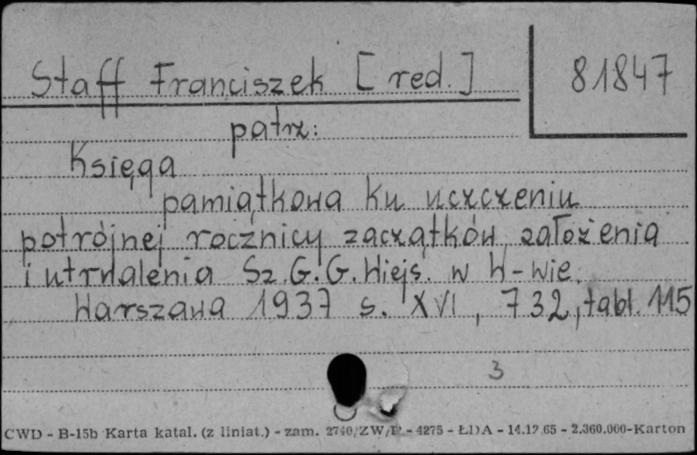 Staff Franciszek [red.]
81847
patrz:
Księga
pamiątkowa ku uczczeniu
potrójnej rocznicy zaczątków, założenia
i utrwalenia Sz. G. G. Wiejs. w W-wie.
Warszawa 1937 s. XVI, 732, tabl. 115
3
CWD - B-15b Karta katal. (z liniat.) - zam. 2740/ZW/ - 4275 - ŁDA - 14.12.65 - 2.360.000-Karton